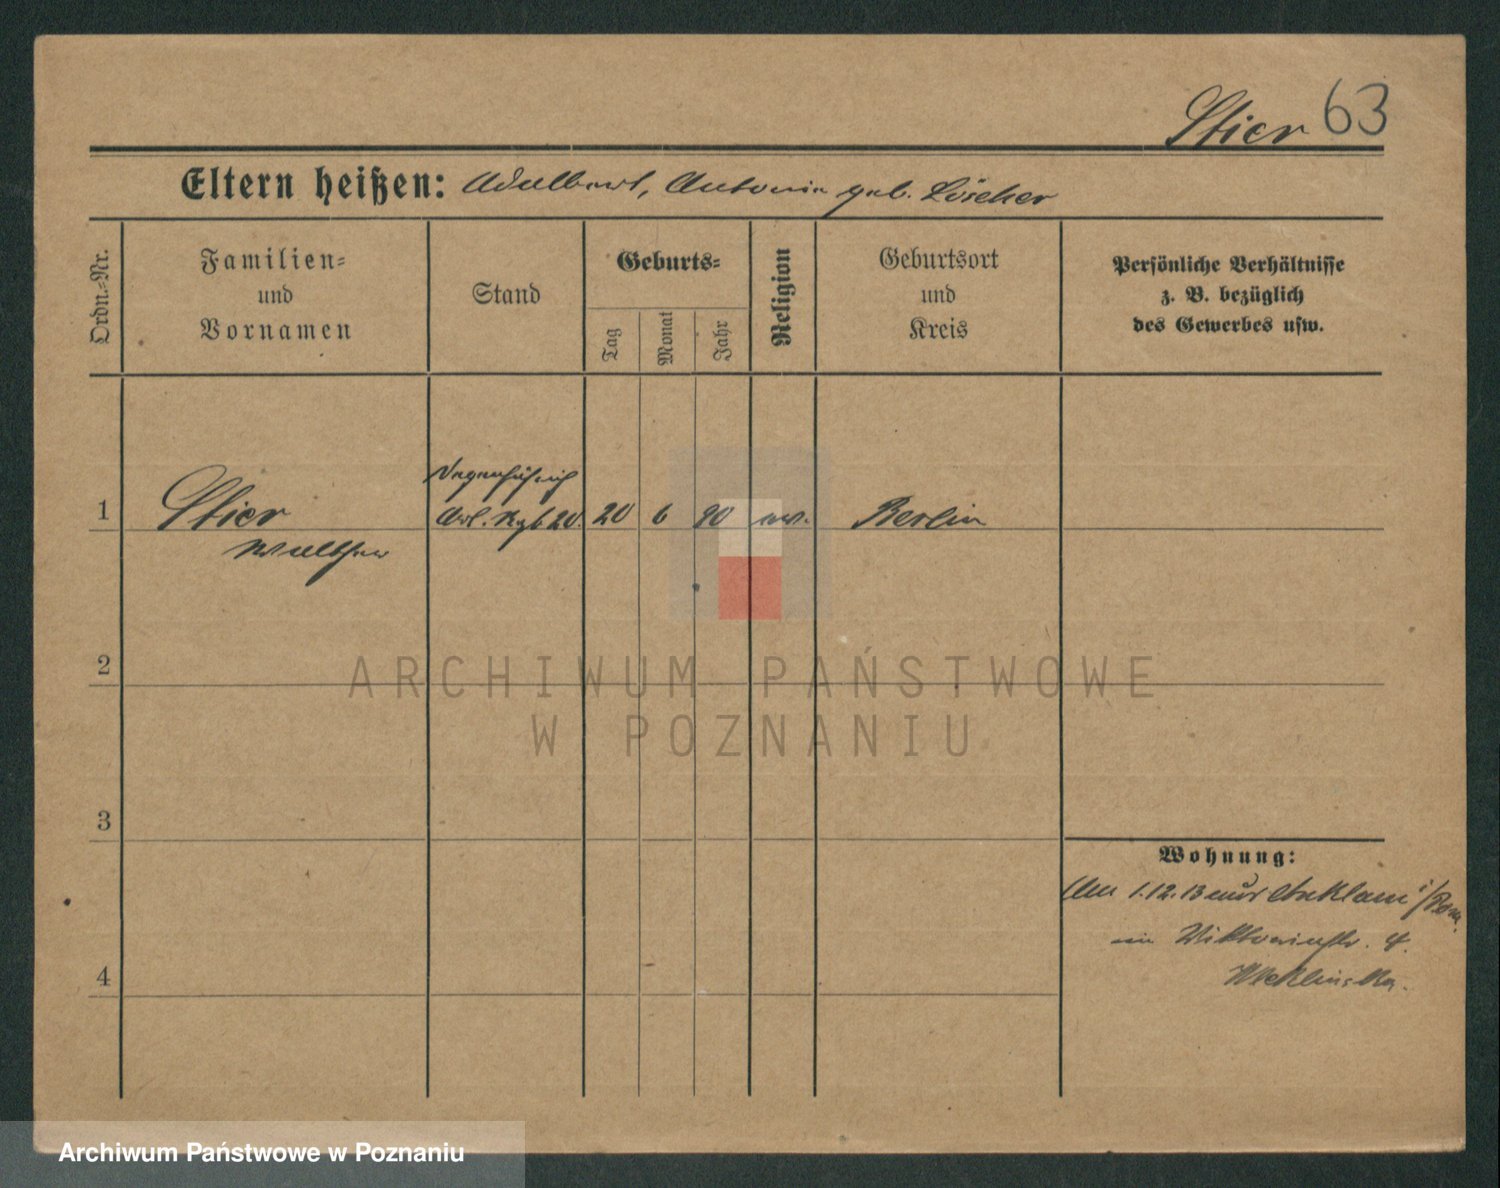 Stier 63
Eltern heißen: Adalbert, Antonie geb. Löscher
Ordn.=Nr.
Familien=
und
Vornamen
Stand
Geburts=
Tag
Monat
Jahr
Religion
Geburtsort
und
Kreis
Persönliche Verhältnisse
z. B. bezüglich
des Gewerbes usw.
1 Stier
Walther
Degenfähnrich
Art. Rgt 20. 20 6 90 ev. Berlin
2
3
4
Wohnung:
Am 1.12.13 aus Anklam i/Pom.
in Viktoriastr. 4.
ARCHIWUM PAŃSTWOWE
W POZNANIU
Archiwum Państwowe w Poznaniu